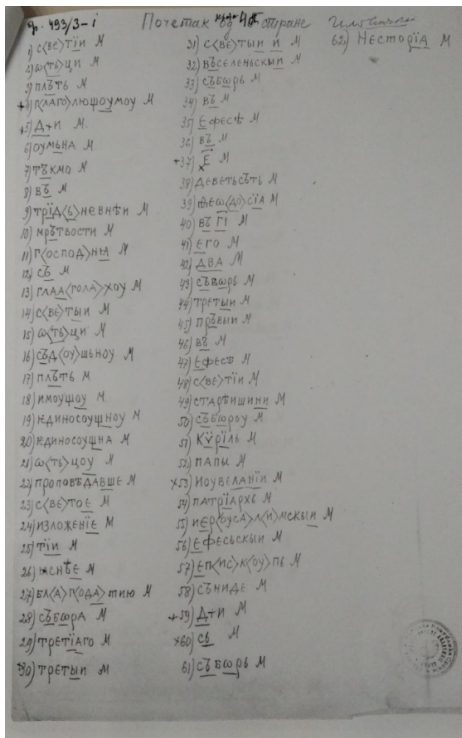 φ. 493/3-i Почетак од 4б стране
1) с<ве>тїи М
2) ѡ<ть>ци М
3) плъть М
+4) г<лаго>лющоумоу М
+5) Д҃+и М.
6) оумьна М
7) тъкмо М
8) въ М
9) трїд<ь>невнѣи М
10) мрътвости М
11) г<оспод>ню М
12) съ М
13) глаа<гола>хоу М
14) с<ве>тыи М
15) ѡ<ть>ци М
16) съд<оу>шьноу М
17) плъть М
18) имоущоу М
19) ѥдиносоущноу М
20) ѥдиносоущна М
21) ѡ<ть>цоу М
22) проповѣдавше М
23) с<ве>тое М
24) изложенїе М
25) тїи М
26) ꙗснѣе М
27) бл<а>г<ода>тию М
28) събѡра М
29) третїаго М
30) третыи М
31) с<ве>тыи и М
32) въселеньскыи М
33) събѡрь М
34) въ М
35) Ефесѣ М
36) въ М
+37) Е҃ М
38) деветьсъть М
39) Ѳеѡ<до>сїа М
40) въ гі М
41) его М
42) два М
43) съвѡрь М
44) третыи М
45) пръвыи М
46) въ М
47) Ефесѣ М
48) с<ве>тїи М
49) старѣишини М
50) събѡроу М
51) Кѵ̈рїль М
52) папы М
×53) Иоувеланїи М
54) патрїархь М
55) иер<оуса>л<и>мскыи М
56) Ефесьскыи М
57) еп<ис>к<оу>пь М
58) съниде М
+59) Д҃+и М
×60) сь М
61) събѡрь М
62) Несторїа М